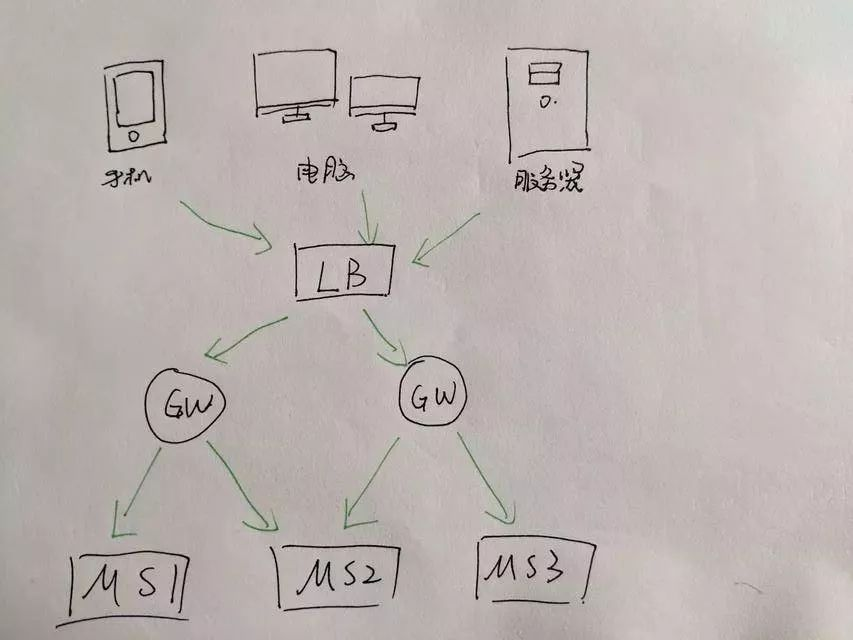 手机
电脑
服务器
LB
GW
GW
MS1
MS2
MS3